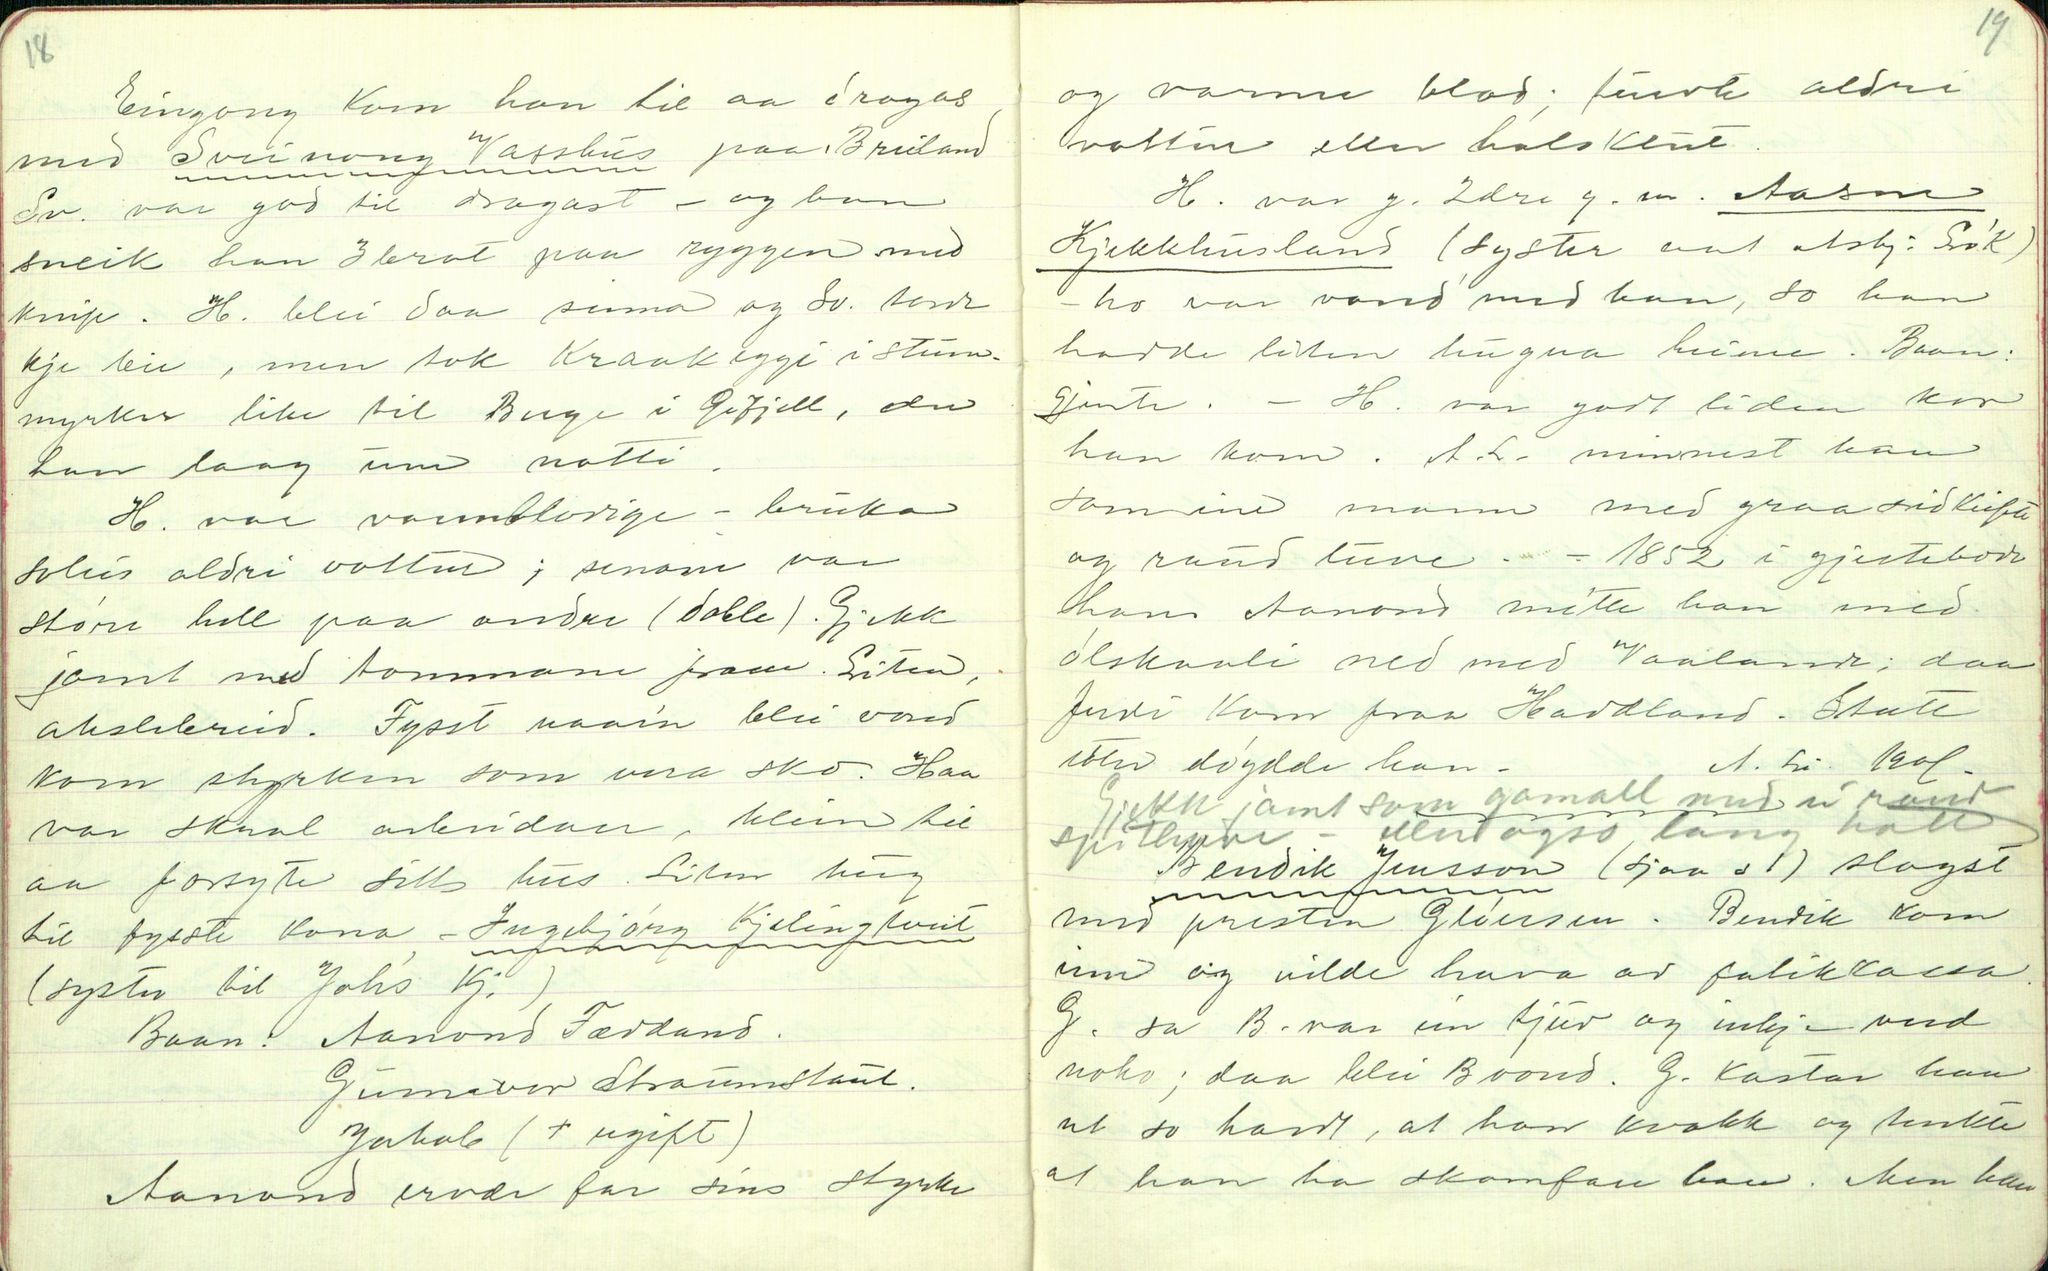 18
Eingong kom han til aa dragas
med Sveinong Vasshus paa Brieland
Sv. var god til dragast - og han
sneik han Hbrot paa ryggen med
knip. H. blei daa sinna og Sv. torde
kje bie, men tok Kraakeggi i stum-
myrker like til Buge i Gifjell, der
han laag um notti.
H. var varmblodige - bruka
soleis aldri vottur; senane var
store hell paa andre (doble). Gjekk
jamt med tommane fram. Liten,
akslebreid. Fysst naain blei vond
kom styrken som vera sko. Haa
var skral arbeidar, klein til
aa forsyte sitt hus. Liten hug
til fysste kona - Ingebjørg Kjelingtveit
(syster til Johs Kj.)
Baan: Aanond Fædland.
Gunnvor Straumstaul.
Jakob (+ ugift)
Aanond ervde far sins styrke
19
og varme blod; turvte aldri
vottur eller halsklut.
H. var g. 2dre g. m. Aasne
Kjekkhusland (syster aat Asbj. Løk)
- ho var vond med han, so han
hadde liten hugna heime. Baan:
gjente. - H. var godt liden kor
han kom. A. L. minnest han
som ein mann med graa sidkufte
og raud luve. - 1852 i gjestebode
hans Aanond møtte han med
ølskaali ned med Vaalande; daa
ferdi kom fraa Haddland. Stutt
etter døydde han - A. Li. 1901.
Gjekk jamt som gamall med ei raud
spitluve - eller ogso lang hatt
Bendik Jensson (sjaa s 1) slogst
med presten Gløersen. Bendik kom
inn og vilde hava av fatikkassa.
G. sa B. var ein tjuv og inkje verd
noko; daa blei B vond. G. kastar han
ut so hardt, at han kvakk og tenkte
at han ha skamfare han. Men han